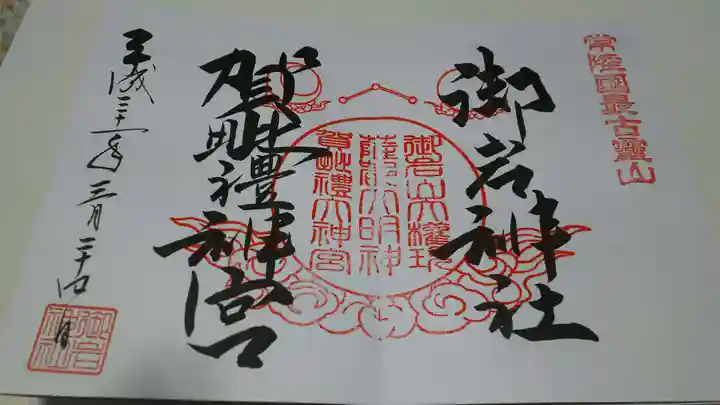 常陸國最古霊山
御岩神社
御岩山大権現
薩都大明神
賀毗禮大神宮
賀毗禮神宮
平成三十一年三月二十四日
御岩神社